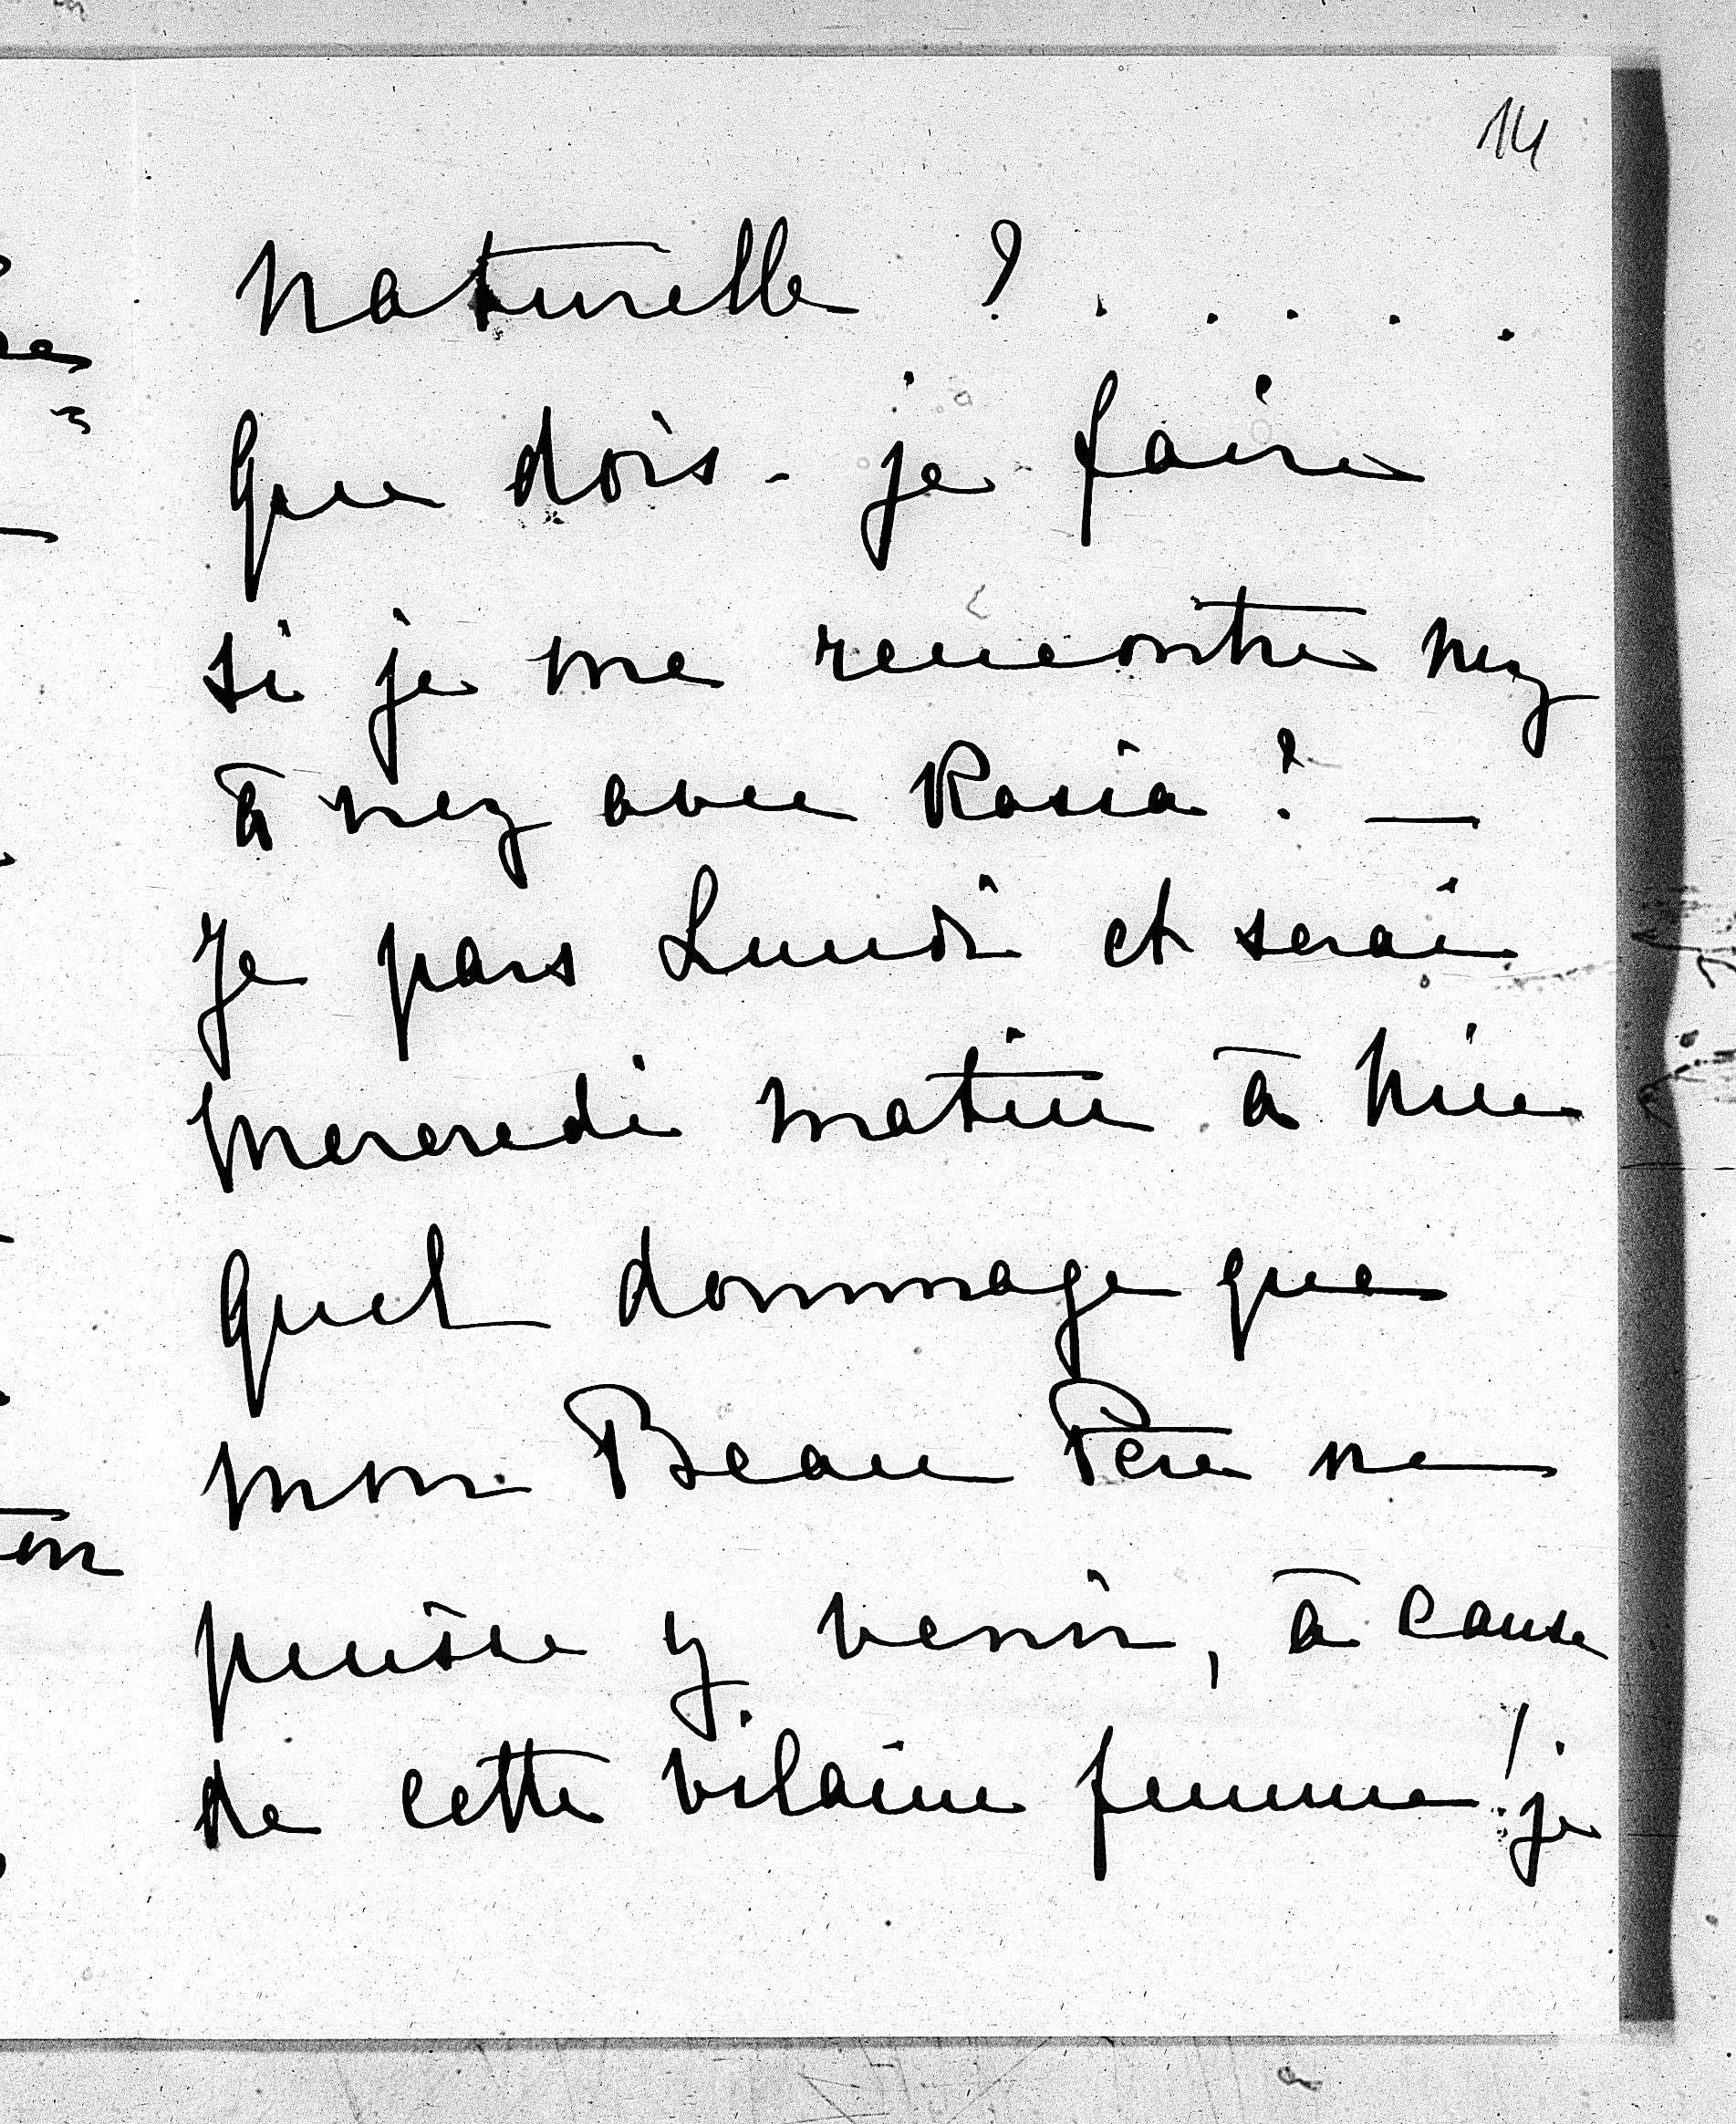 14
naturelle ? . . . . .
Que dois-je faire
si je me rencontre nez
à nez avec Rosia ? —
Je pars Lundi et serai
Mercredi matin à Nice
Quel dommage que
mon Beau Père ne
puisse y venir, à cause
de cette vilaine femme ! je